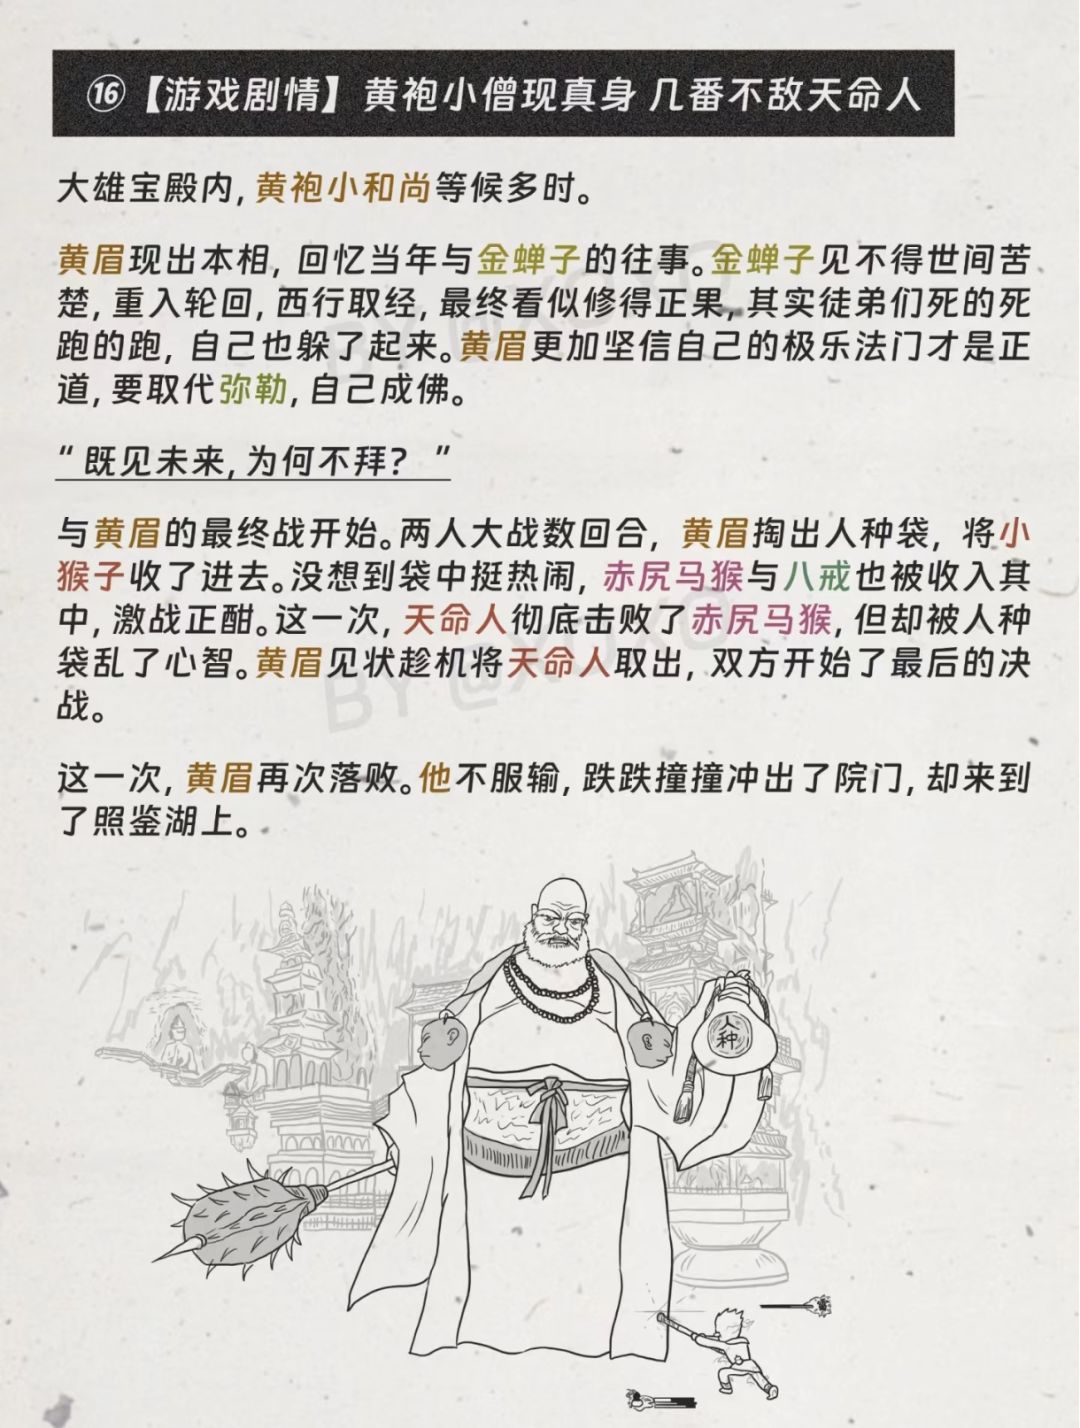 ⑯【游戏剧情】黄袍小僧现真身 几番不敌天命人
大雄宝殿内，黄袍小和尚等候多时。
黄眉现出本相，回忆当年与金蝉子的往事。金蝉子见不得世间苦
楚，重入轮回，西行取经，最终看似修得正果，其实徒弟们死的死
跑的跑，自己也躲了起来。黄眉更加坚信自己的极乐法门才是正
道，要取代弥勒，自己成佛。
“既见未来，为何不拜？”
与黄眉的最终战开始。两人大战数回合，黄眉掏出人种袋，将小
猴子收了进去。没想到袋中挺热闹，赤尻马猴与八戒也被收入其
中，激战正酣。这一次，天命人彻底击败了赤尻马猴，但却被人种
袋乱了心智。黄眉见状趁机将天命人取出，双方开始了最后的决
战。
这一次，黄眉再次落败。他不服输，跌跌撞撞冲出了院门，却来到
了照鉴湖上。
人种
BY @XOXO
BY @XOXO